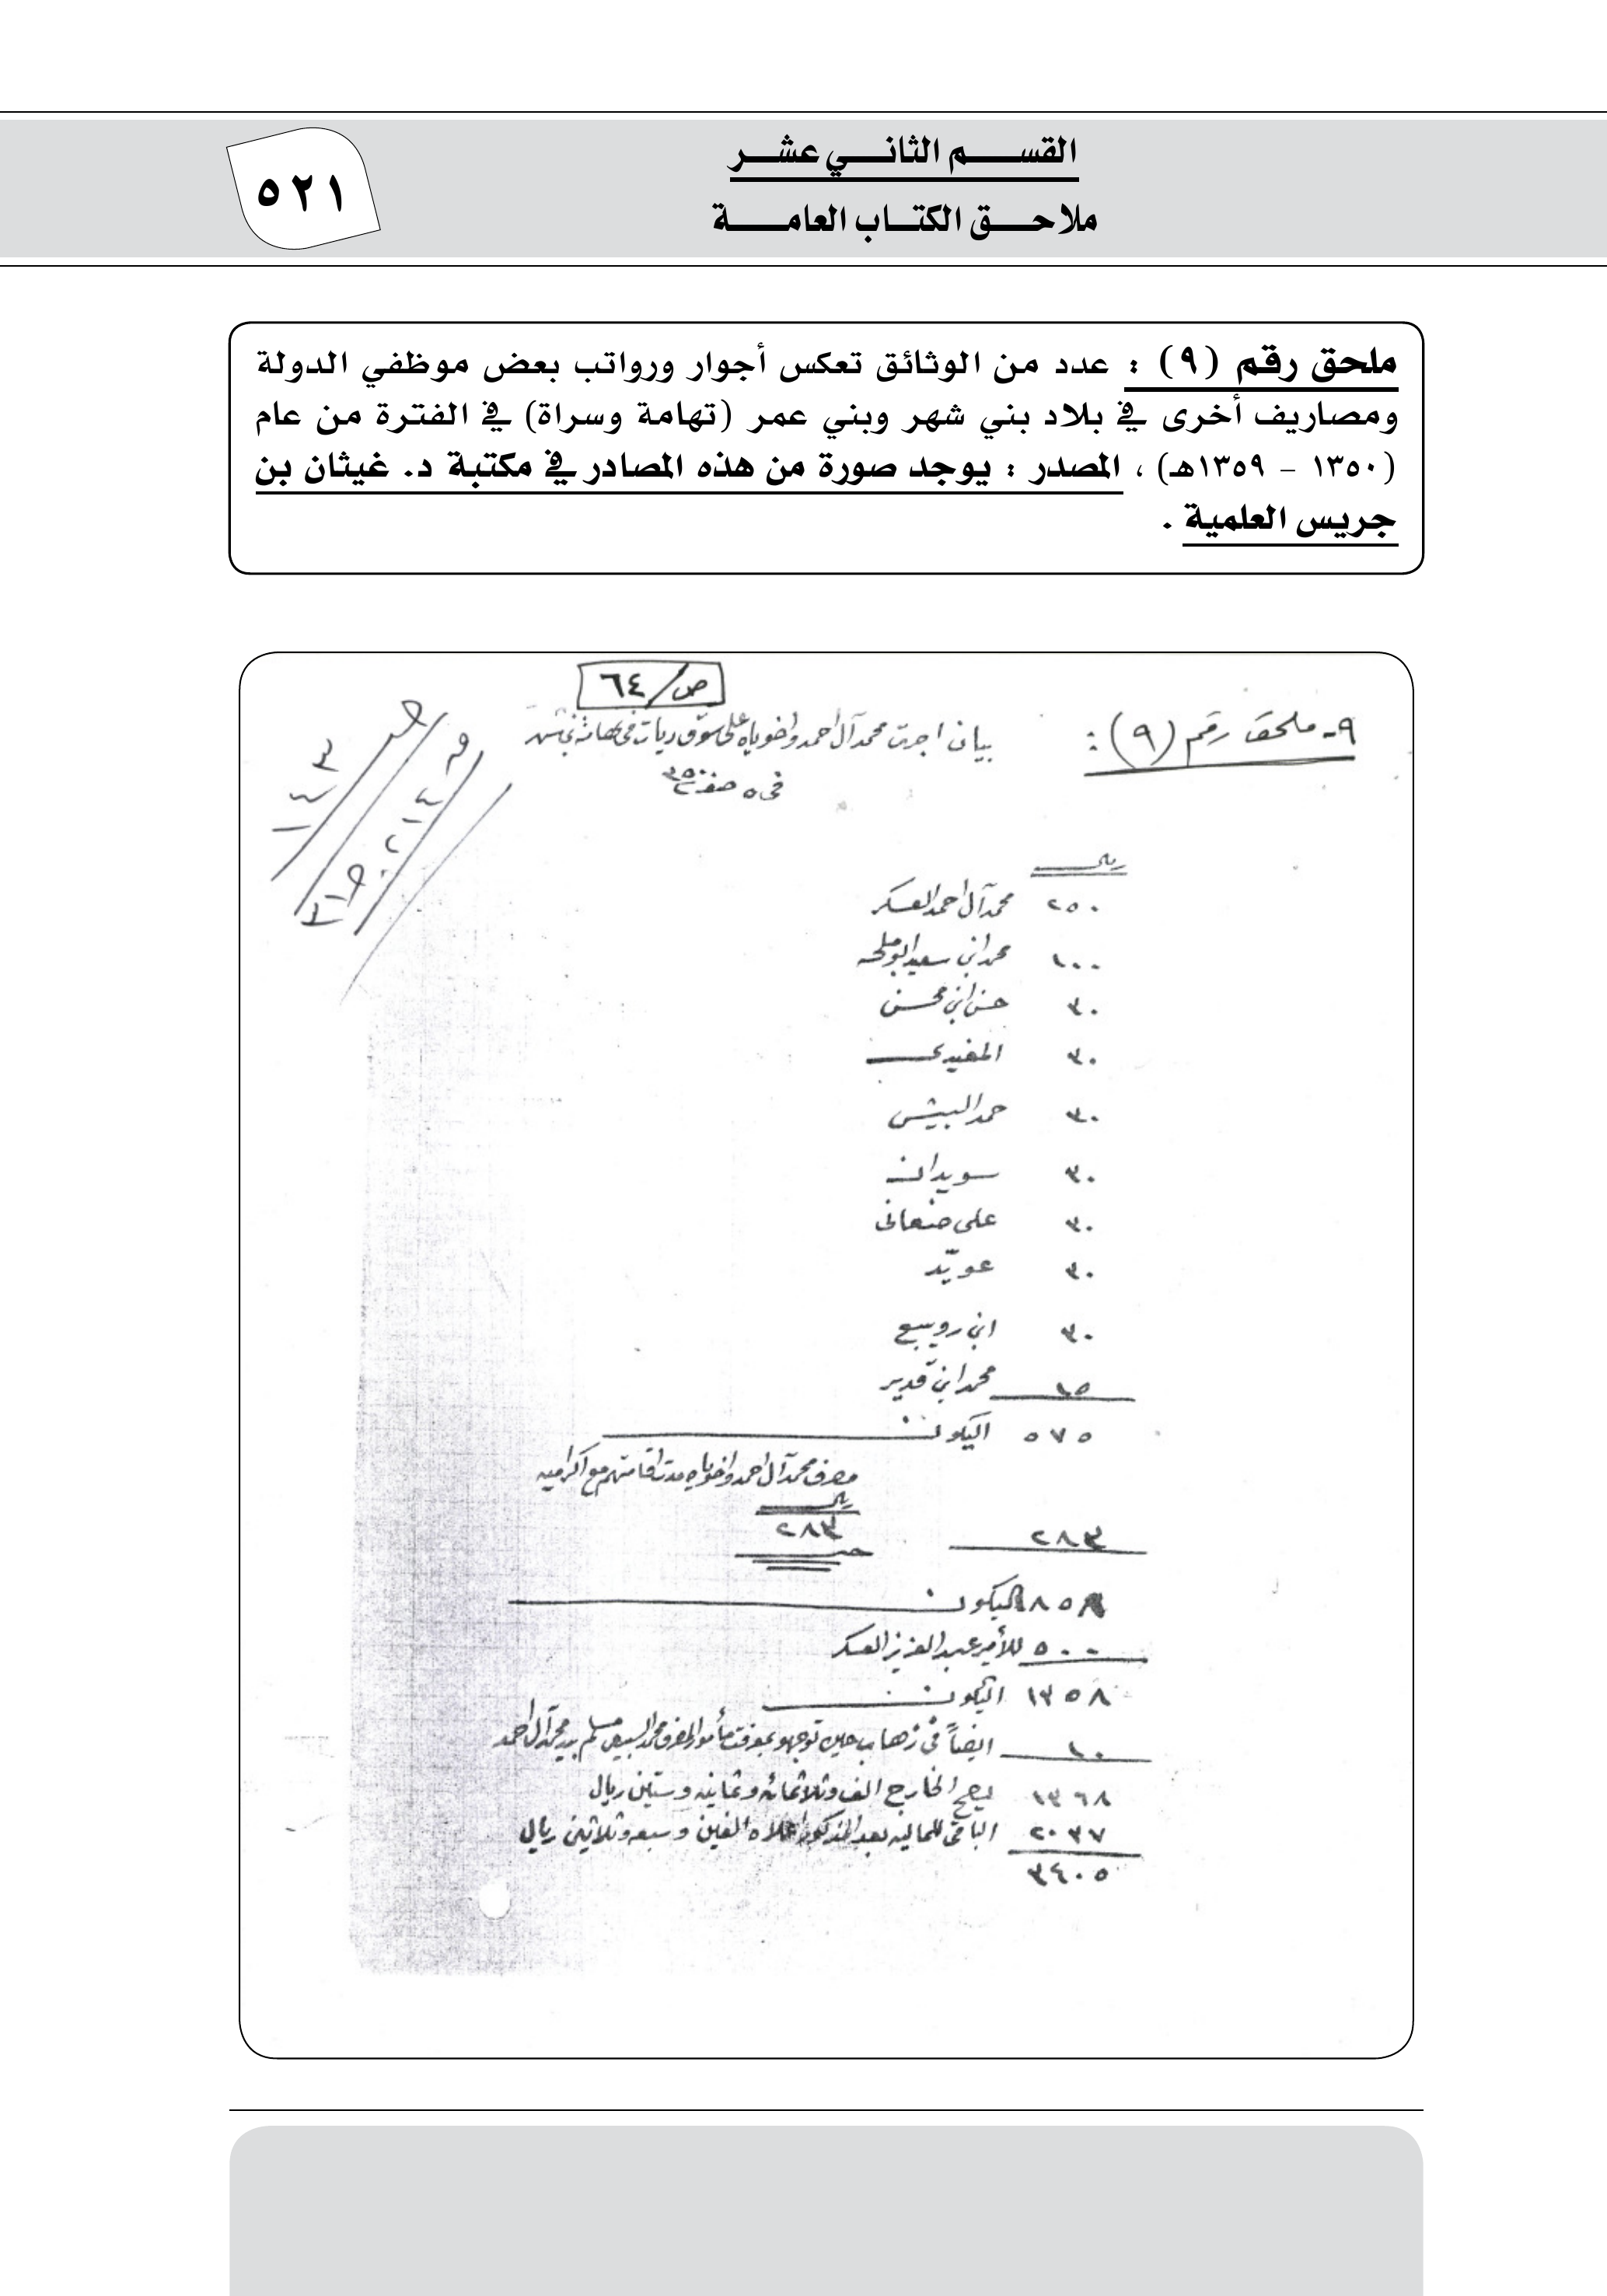 القســـم الثانـــي عشـــر
ملاحـــق الكتـــاب العامـــة
٥٢١
ملحق رقم (٩) : عدد من الوثائق تعكس أجوار ورواتب بعض موظفي الدولة
ومصاريف أخرى في بلاد بني شهر وبني عمر (تهامة وسراة) في الفترة من عام
(١٣٥٠ – ١٣٥٩هـ) ، المصدر : يوجد صورة من هذه المصادر في مكتبة د. غيثان بن
جريس العلمية .
ص/٦٤
٩- ملحق رقم (٩) :
بيان اجرت محمد آل احمد واخوياه على سوق ديات في تهامة
في ٥ صفر
ريال
٢٥٠ محمد آل احمد العسكر
١٠٠ محمد ابن سعيد ابو ملحه
٣٠ حسن ابن محسن
٣٠ المفيدي
٣٠ حمد البيشي
٣٠ سويدان
٣٠ على صنعانى
٣٠ عويّد
٣٠ ابن رويبع
١٥ محمد ابن قدير
٥٧٥ اليكون
مصرف محمد آل احمد واخوياه مدت اقامتهم مع اكراميه
ريال
٢٨٣ ٢٨٣
٨٥٨ اليكون
٥٠٠ للأمير عبد العزيز العسكر
١٣٥٨ اليكون
١٠ ايضاً في ذهاب حين توجهو بمعرفت مأمور المصرف محمد السبيعي مسلم بيد محمد آل احمد
١٣٦٨ يصح الخارج الف وثلاثمائه وثمانيه وستين ريال
٢٠٣٧ الباقى للماليه بعد المذكور اعلاه الفين وسبعه وثلاثين ريال
٣٤٠٥